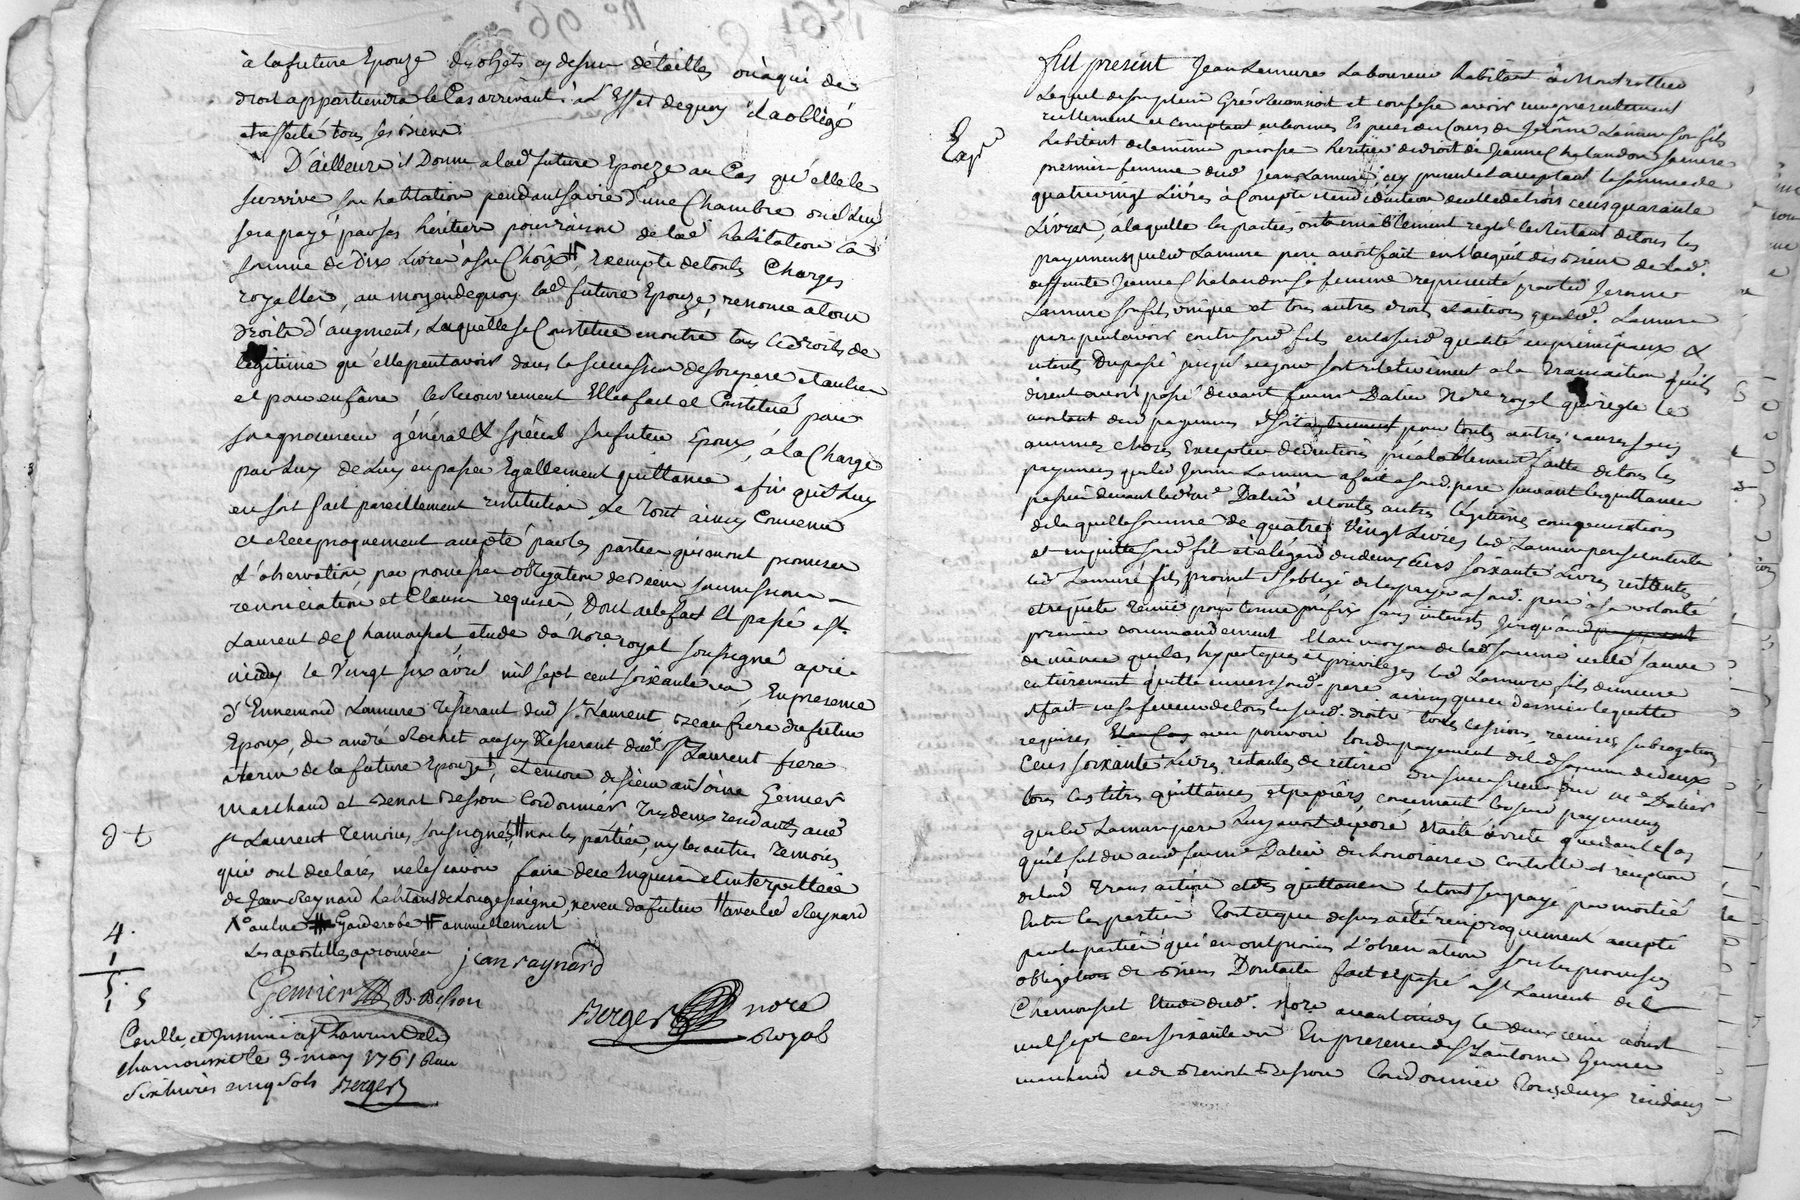 à la future Epouze des objets cy dessus détaillés ou à qui de
droit appartiendra le Cas arrivant, à L'Effet de quoy il a obligé
et affecté tous ses biens.
D'ailleurs il Donne a lad. future Epouze au Cas qu'elle le
survive son habitation pendant sa vie d'une Chambre ou il Luy
sera payé par ses héritiers pour raison de lad. habitation la
somme de Dix Livres à son Choix, Exempte de toutes Charges
royalles, au moyen de quoy lad. future Epouze, renonce a tous
droits d'augment, Laquelle se Constitue en outre tous les droits de
légitime qu'elle peut avoir dans la succession de son pere et autres
et pour en faire le Recouvrement Elle a fait et Constitué pour
son procureur général & spécial son futur Epoux, à la Charge
par Luy de Luy en passer Egallement quittance afin qu'il Luy
en soit fait pareillement restitution. Le Tout ainsy Convenu
et Réciproquement accepté par les parties qui en ont promis
L'observation par promesses obligation de biens soumissions
renonciation et Clauses requises, Dont acte fait et passé a St.
Laurent de Chamousset étude du No.re royal soussigné après
midy le Vingt six avril mil sept cent soixante un, En presence
d'Ennemond Lamure résidant aud. St. Laurent beau frere du futur
Epoux, de andré Rochet aussy Résidant aud. St. Laurent frere
uterin de la future Epouze, et encore de sieur antoine Genier
Marchand et Benoit Besson Cordonnier Tous deux residants aud.
St. Laurent Temoins soussignés, non les parties, ny les autres Temoins
qui ont declarés ne le scavoir faire de ce Enquis et interpellés
de Jean Reynard habitant de Longessaigne, neveu du futur avec led. Reynard
No. aulne Garderobe annuellement
Les apostilles aprouvées jean raynard
Genier B. Besson
Berger no.re
Royal
4.
1
5.
1 5
Conllé, et Insinué a St Laurent de
chamousset le 3. may 1761 Reçu
six livres cinq sols Berger
Fut présent Jean Lamure Laboureur habitant à Montrottier
Lequel de son plein Gré Reconnoit et confesse avoir reçu présentement
réellement et comptant en bonnes Especes du Cours de Jerôme Lamure son fils
habitant de la même paroisse heritier de droit de Jeanne Chalandon sa mere
premiere femme dud. Jean Lamure, icy présent et acceptant la somme de
quatre vingt Livres à Compte et en déduction de celle de trois cens quarante
Livres, à laquelle les parties ont amiablement reglé le Restant de tous les
payemens que led. Lamure pere avoit fait en l'acquit des biens de lad.
deffunte Jeanne Chalandon sa femme représentée par led. Jerome
Lamure son fils unique et tous autres droits et actions que led. Lamure
pere peut avoir contre sond. fils en lad. qualité en principaux &
interets Du passé jusqu'à ce jour soit relativement a la Transaction qu'ils
disent avoir passé devant feu Me Dalier No.re royal qui règle le
montant desd. payemens soit pour toutes autres causes sans
aucunes choses Excepter déductions préalablement faitte de tous les
payemens que led. Jerome Lamure a fait a sond. pere suivant les quittances
passées devant led. Me Dalier et toutes autres légitimes compensations
de laquelle somme de quatre Vingt Livres led. Lamure pere se contente
et en quitte sond. fils et à l'égard des deux Cens soixante Livres restantes
led. Lamure fils promet et s'oblige de les payer a sond. pere à sa volonté
et requête terme pour terme préfix sans interets jusqu'au
premier commandement Et au moyen de lad. somme icelle sauve
de même que les hypoteques et privileges led. Lamure fils demeure
entierement quitte envers sond. pere
et fait en sa faveur de tous les susd. droits toutes cessions, remises, subrogations
requises avec pouvoir lors du payement de lad. somme de deux
Cens soixante Livres restantes de retirer du successeur dud. Me Dalier
tous les titres quittances et papiers concernant les susd. payemens
que led. Lamure pere luy avoit déposé
qu'il fut du aud. feu Me Dalier des honoraires controlle et reception
de lad. Transaction et des quittances le tout sera payé par moitié
Entre les parties Tout ce que dessus a été reciproquement accepté
par les parties qui en ont promis L'observation sous les promesses
obligations de biens Dont acte fait et passé a St. Laurent de
Chamousset Etude dud. No.re avant midy le deux aoust
mil sept cens soixante un En presence de Sr. antoine Genier
marchand et de Benoit Besson Cordonnier Tous deux residans